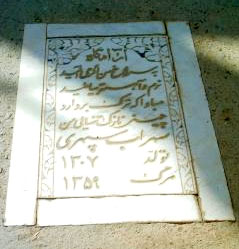 آرامگاه
به سراغ من اگر می آیید
نرم و آهسته بیایید
مبادا که ترک بردارد
چینی نازک تنهایی من
سهراب سپهری
تولد ۱۳۰۷
مرگ ۱۳۵۹